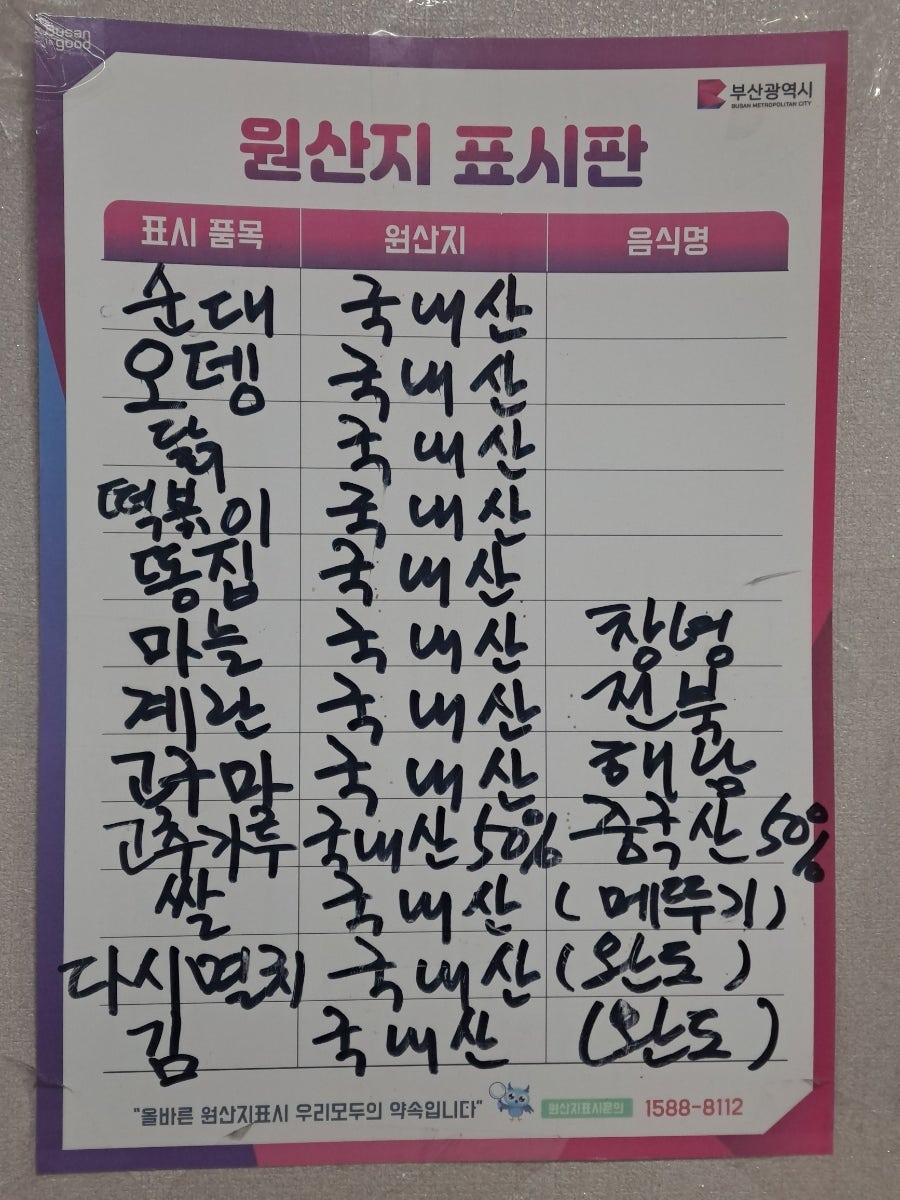 Busan is good
부산광역시
BUSAN METROPOLITAN CITY
원산지 표시판
표시 품목 원산지 음식명
순대 국내산
오뎅 국내산
닭 국내산
떡볶이 국내산
똥집 국내산
마늘 국내산 창녕
계란 국내산 전북
고구마 국내산 해남
고추가루 국내산 50% 중국산 50%
쌀 국내산 (메뚜기)
다시멸치 국내산 (완도)
김 국내산 (완도)
"올바른 원산지표시 우리모두의 약속입니다" 원산지표시문의 1588-8112